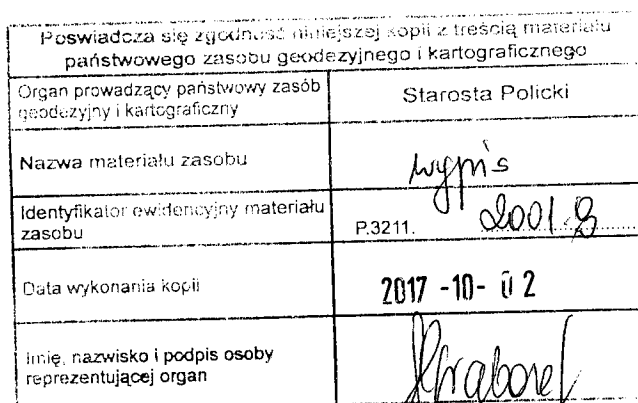 Poswiadcza się zgodność niniejszej kopii z treścią materiału
państwowego zasobu geodezyjnego i kartograficznego
Organ prowadzący państwowy zasób
geodezyjny i kartograficzny
Starosta Policki
Nazwa materiału zasobu
wypis
Identyfikator ewidencyjny materiału
zasobu
P.3211. 2001.
Data wykonania kopii
2017 -10- 02
Imię, nazwisko i podpis osoby
reprezentującej organ